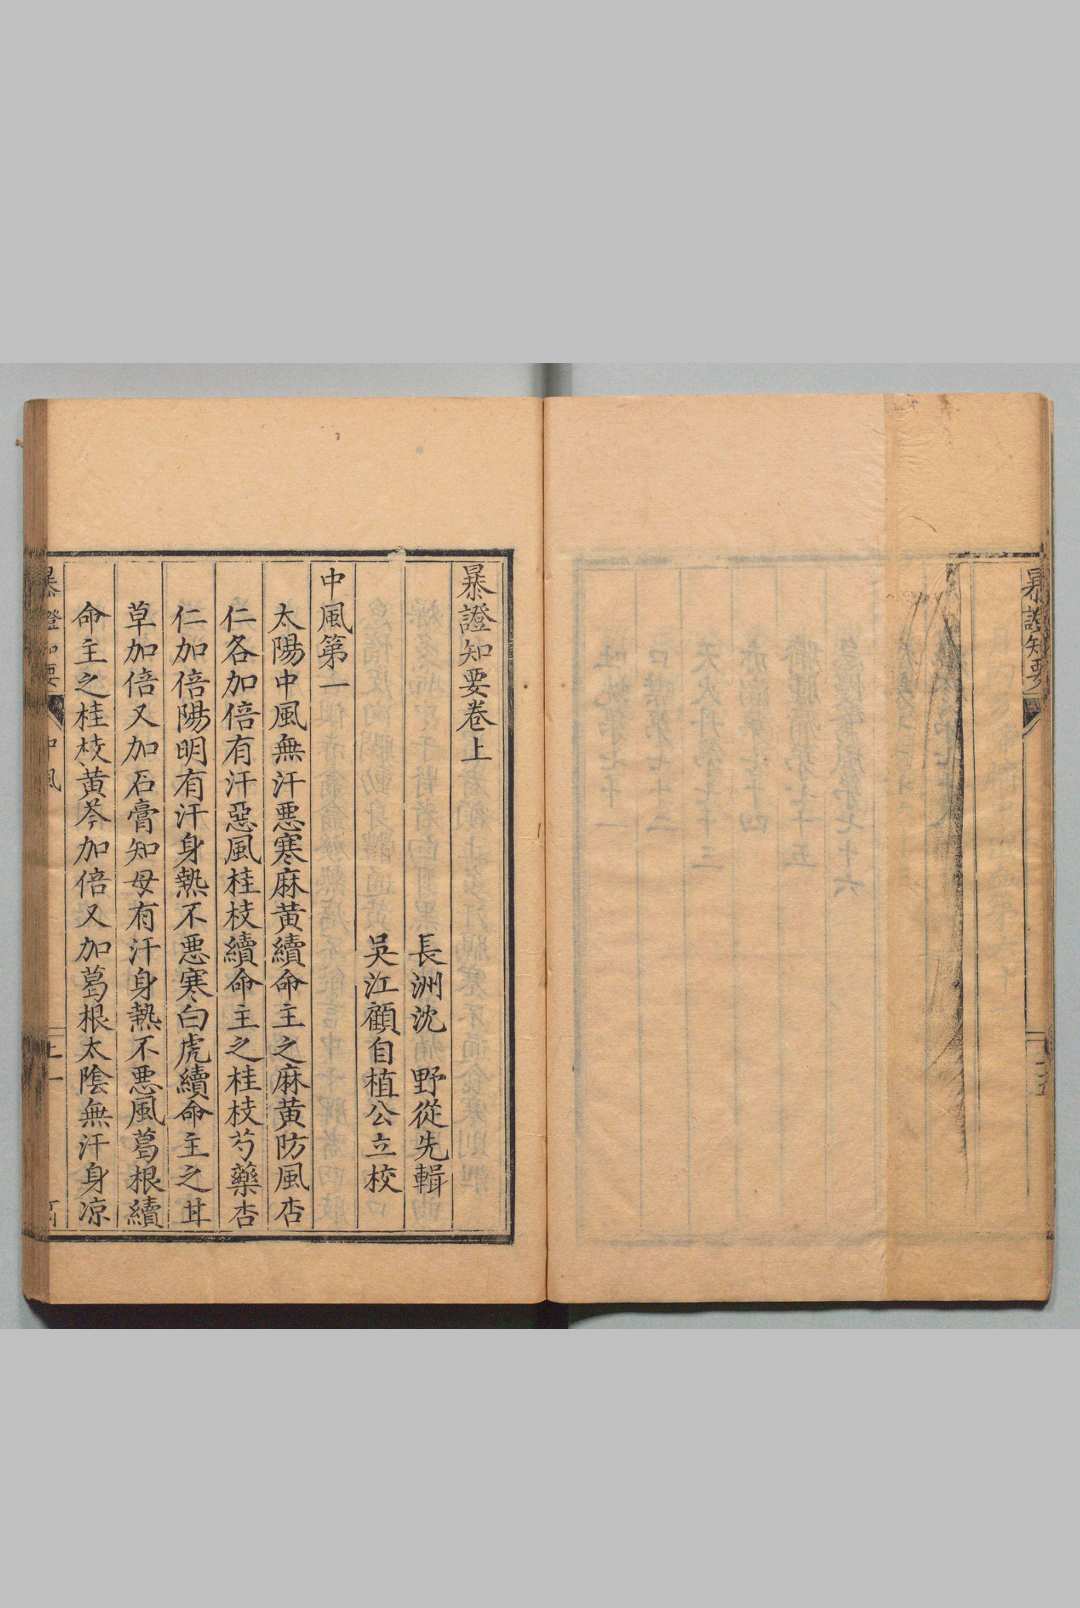 暴證知要
暴證知要卷上
長洲沈野從先輯
吳江顧自植公立校
中風第一
太陽中風無汗悪寒麻黄續命主之麻黄防風杏
仁各加倍有汗惡風桂枝續命主之桂枝芍藥杏
仁加倍陽明有汗身熱不悪寒白虎續命主之甘
草加倍又加石膏知母有汗身熱不悪風葛根續
命主之桂枝黄芩加倍又加葛根太陰無汗身凉
暴證知要 中風 上一